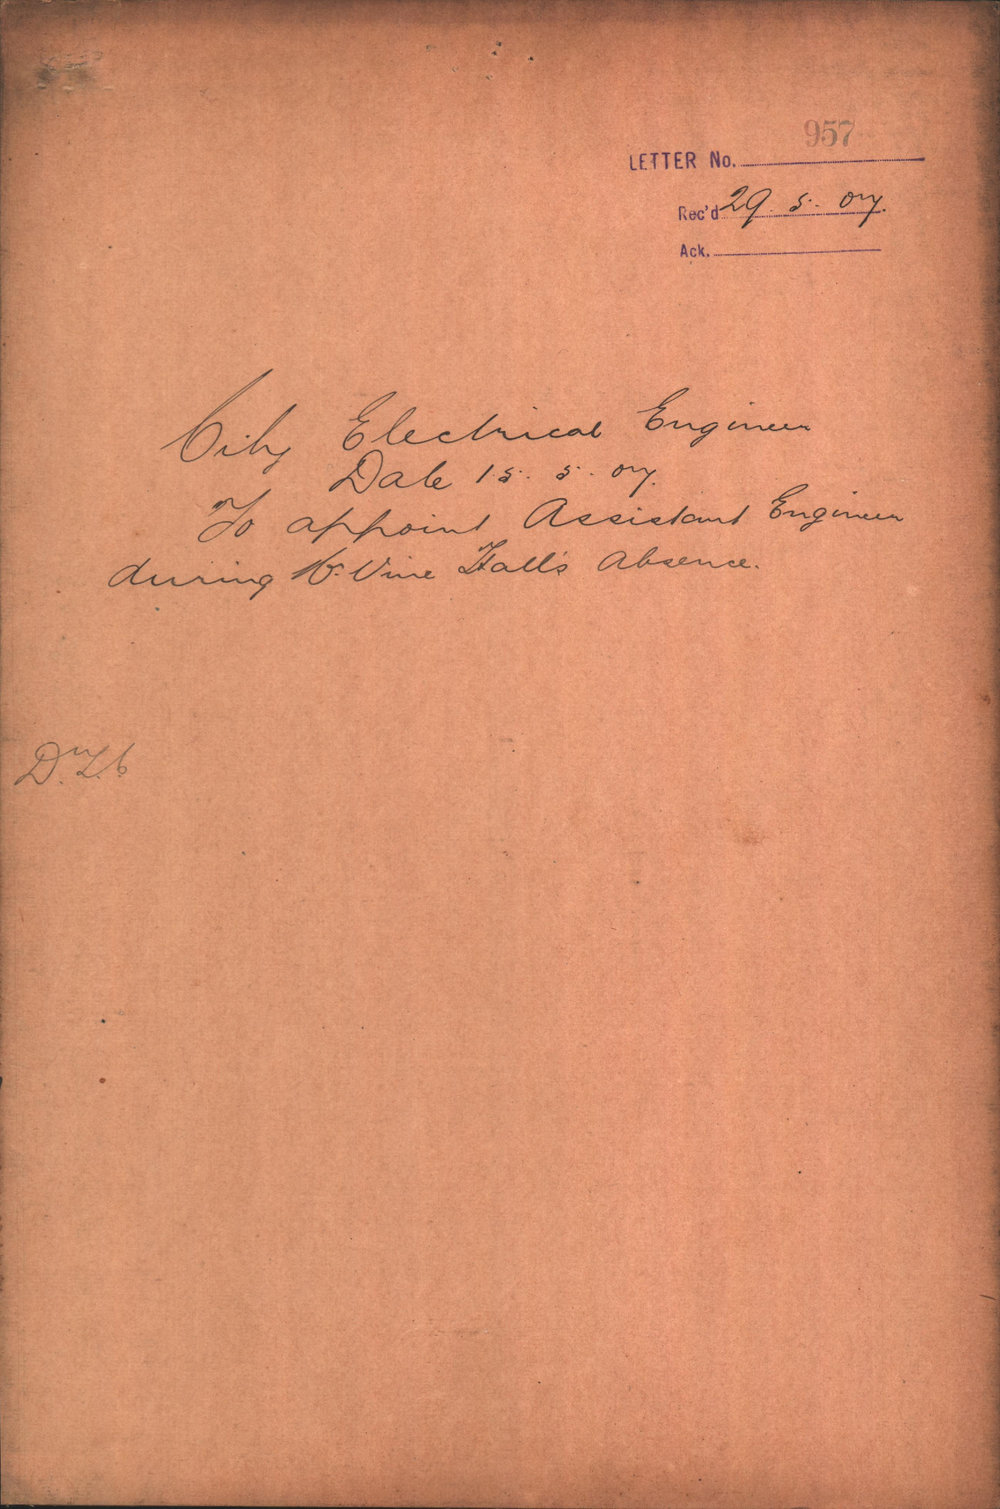 957
LETTER No.
Rec'd 29. 5. 07.
Ack.
City Electrical Engineer
Date 15. 5. 07.
To appoint Assistant Engineer
during Vine Hall's absence.